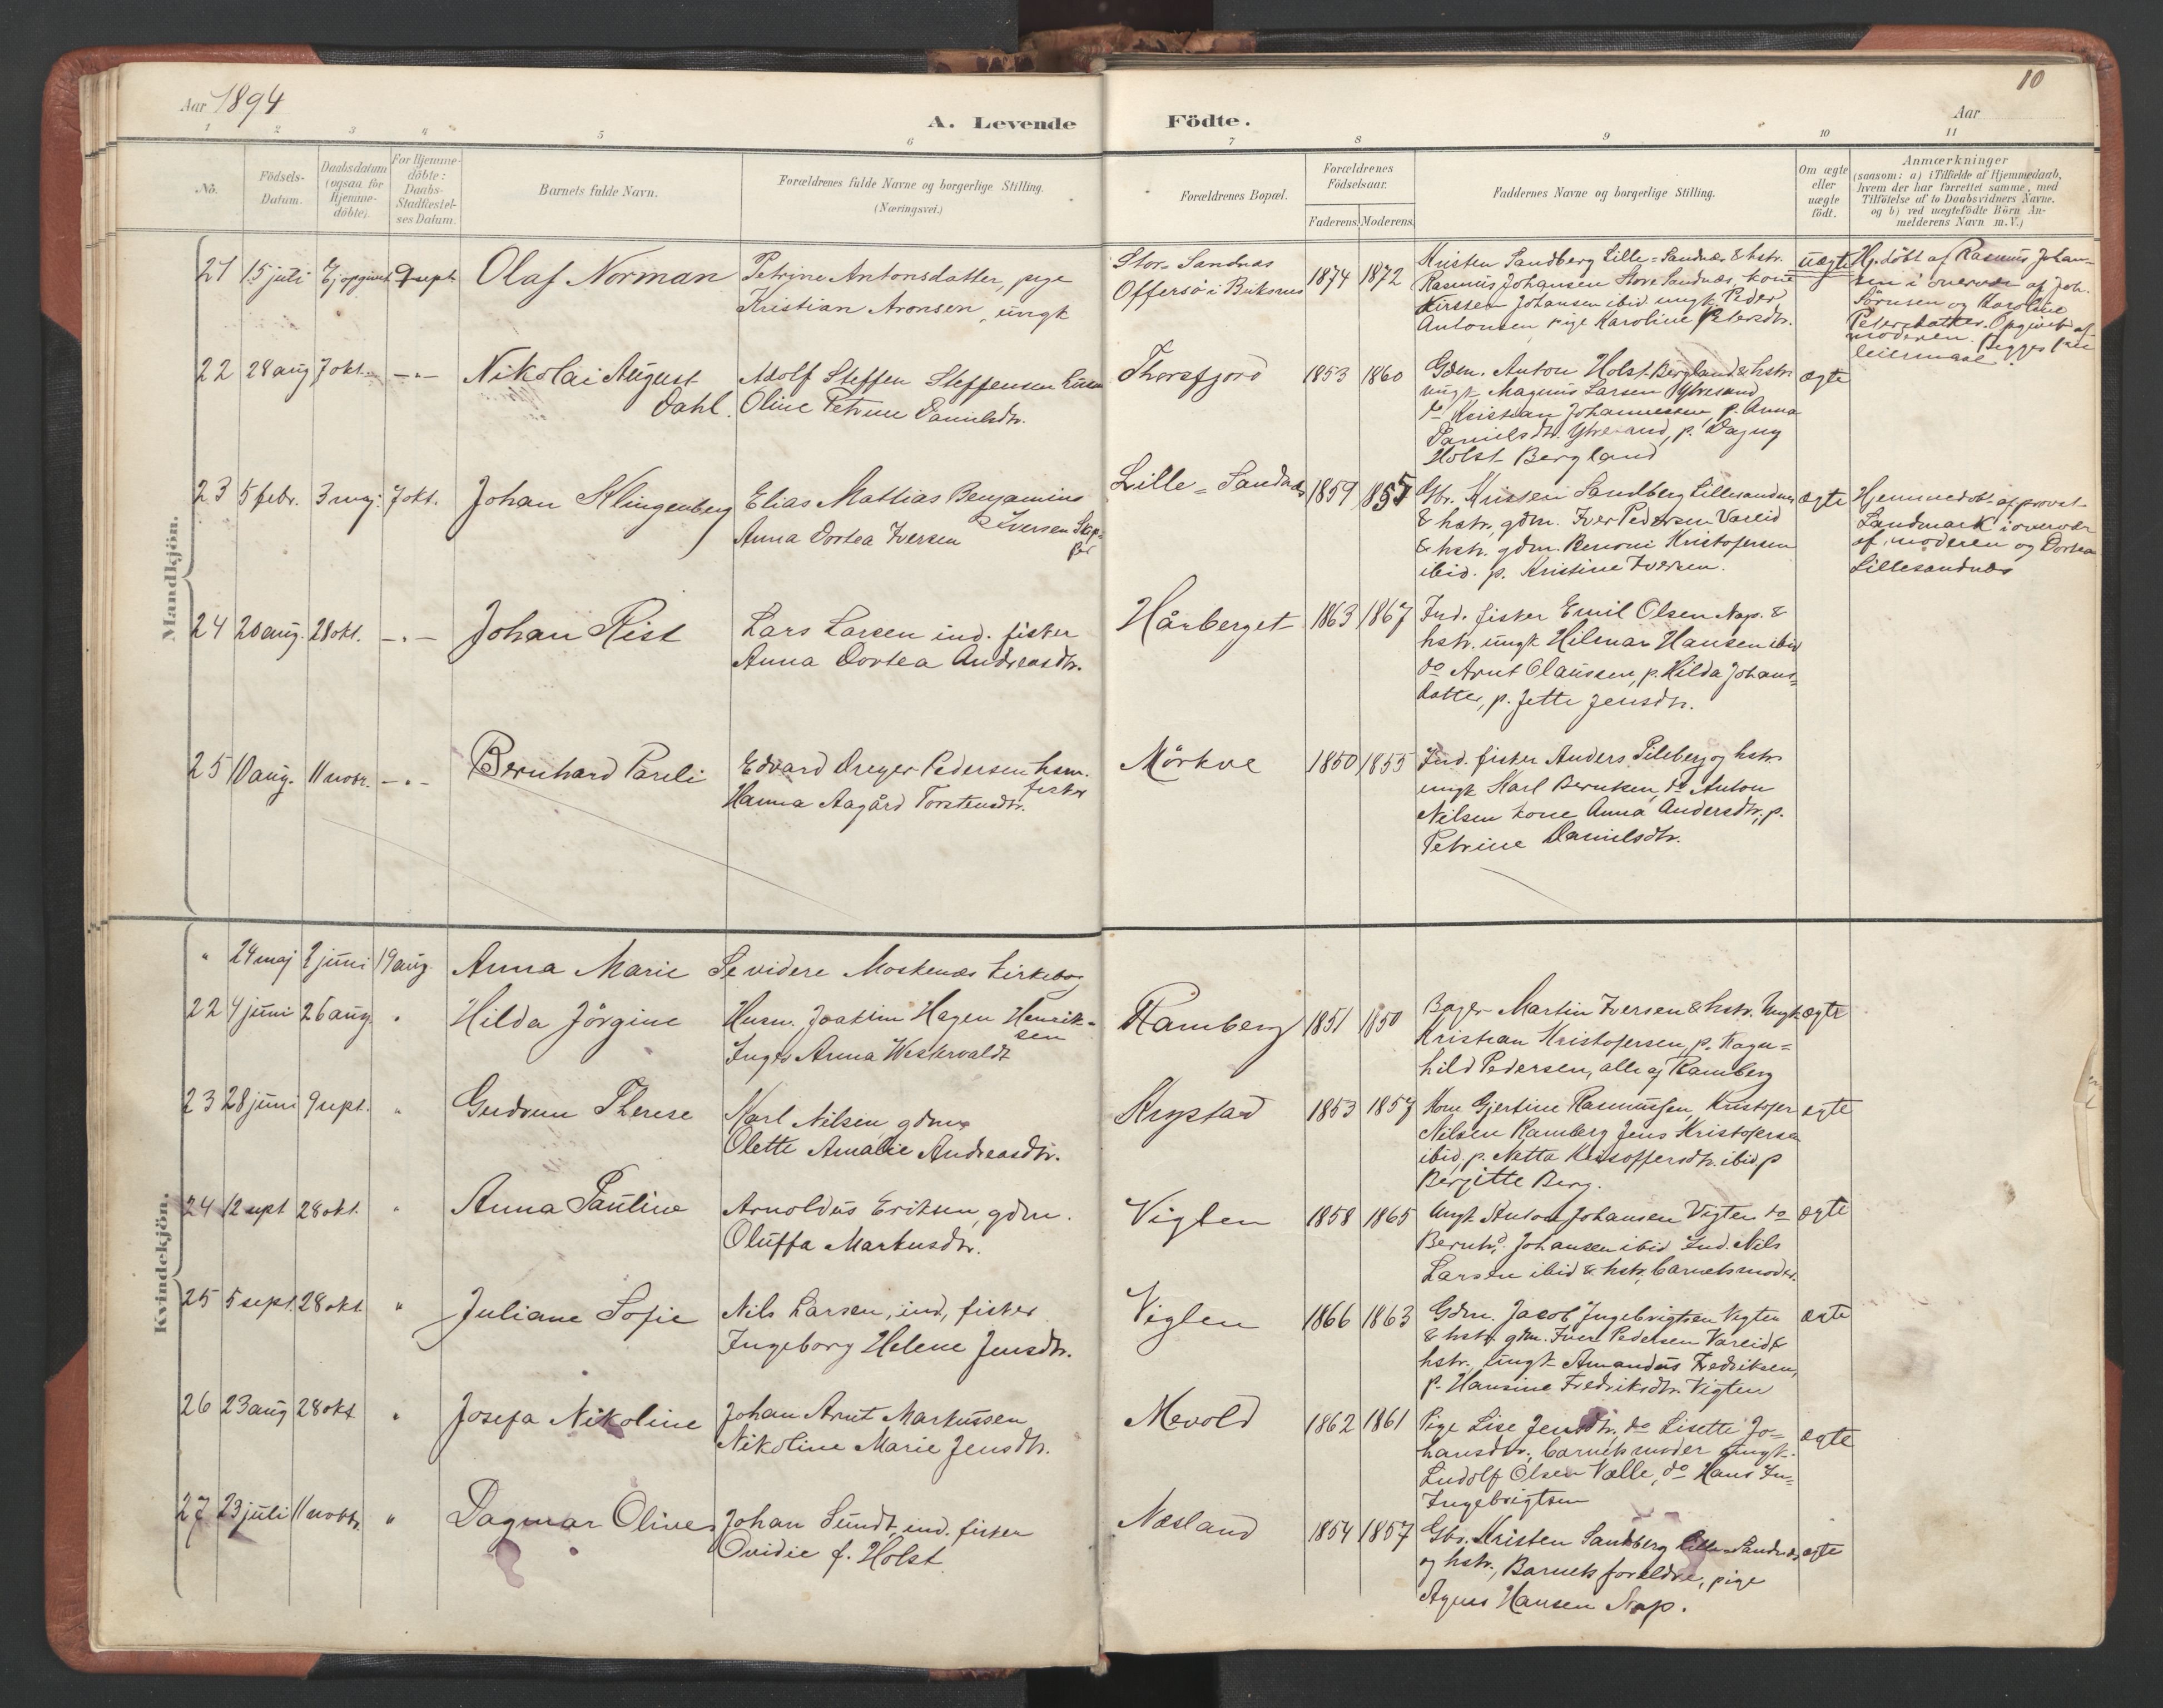 Aar 1894
A. Levende Födte.
Aar
10
1 2 3 4 5 6 7 8 9 10 11
No.
Födsels-Datum.
Daabsdatum (ogsaa for Hjemme-döbte).
For Hjemme-döbte: Daabs-Stadfæstel-ses Datum.
Barnets fulde Navn.
Forældrenes fulde Navne og borgerlige Stilling.
(Næringsvei.)
Forældrenes Bopæl.
Forældrenes Födselsaar.
Faderens. Moderens.
Faddernes Navne og borgerlige Stilling.
Om ægte eller uægte födt.
Anmærkninger
(saasom: a) i Tilfælde af Hjemmedaab, hvem der har forrettet samme, med Tilföielse af to Daabsvidners Navne. og b) ved uægtefödte Börn An-melderens Navn m.V.)
Mandkjön.
21 15 juli Ej opgivet 9 sept. Olaf Norman
Petrine Antonsdatter, pige
Kristian Aronsen, ungk
Stor-Sandnas
Offersö i Buksnes
1874 1872
Kristen Sandberg Lille-Sandnæs & hstr.
Rasmus Johansen Store Sandnæs, kone
Kirsten Johansen ibid ungk. Peder
Antonsen, pige Karoline Petersdtr.
uægte
Hj.döbt af Rasmus Johan-
sen i overvær af Joh.
Sörnsen og Karoline
Petersdatter. Opgivet af
moderen. Begges förste
leiermaal.
22 28 aug 7 okt. -"- Nikolai August
Dahl.
Adolf Steffen Steffensen
Oline Petrine Danielsdtr.
Thorsfjord
1853 1860
Gdm. Anton Holst Bergland & hstr.
ungk. Magnus Larsen Ytresand
do Kristian Johannessen, p. Anna
Danielsdtr. Ytresand, p. Dagny
Holst Bergland
ægte
23 5 febr. 3 maj. 7 okt. Johan Klingenberg
Elias Mattias Benjamins
Iversen Skip-
per
Anna Dortea Iversen
Lille-Sandnæs
1859 1857
Gbr. Kristen Sandberg Lillesandnæs
& hstr., gdm. Iver Pedersen Vareid
& hstr. gdm. Benoni Kristofersen
ibid. p. Kristine Iversen.
ægte
Hjemmedöbt af provst
Landmark i overvær
af moderen og Dortea
Lillesandnæs
24 20 aug. 28 okt. -"- Johan Rist
Lars Larsen ind. fisker
Anna Dortea Andreasdtr.
Hårberget
1863 1867
Ind. fisker Emil Olsen Nap. &
hstr. ungk Hilmar Hansen ibid
do Arnt Claussen, p. Hilda Johans-
datter, p. Jette Jensdtr.
25 10 aug. 11 novbr. -"- Bernhard Pareli
Edvard Dreyer Pedersen hsm.
fisker
Hanna Aagård Torstensdtr.
Mörkve
1850 1855
Ind. fisker Anders Pileberg og hstr
ungk Karl Berntsen, do Anton
Nilsen kone Anna Andersdtr, p.
Petrine Danielsdtr.
Kvindekjön.
" 24 maj 2 juni 19 aug. Anna Marie Se videre Moskenæs kirkebog
22 4 juni 26 aug. " Hilda Jörgine
Husm. Joakim Hagen Henrik-
sen
Inger Anna Westervaldt
Ramberg
1851 1850
Bager Martin Iversen & hstr. Ungk
Kristian Kristofersen, p. Ragn-
hild Pedersen, alle af Ramberg
ægte
23 28 juni 9 sept. " Gudrun Therese
Karl Nilsen, gdm
Olette Amalie Andreasdtr.
Krystad
1853 1857
Kone Gjertine Rasmussen, Kristofer
Nilsen Ramberg Jens Kristofersen
ibid, p. Netta Kristoffersdtr. ibid p
Bergitte Berg.
ægte
24 12 sept 28 okt. " Anna Pauline
Arnoldus Eriksen, gdm.
Oluffa Markusdtr.
Vigten
1858 1865
Ungk Anton Johansen Vigten do
Bernhd. Johansen ibid Ind. Nils
Larsen ibid & hstr, barnets moder.
ægte
25 5 sept. 28 okt. " Juliane Sofie
Nils Larsen, ind, fisker
Ingeborg Helene Jensdtr.
Vigten
1866 1863
Gdm. Jacob Ingebrigtsen Vigten
& hstr gdm. Iver Pedersen Vareid &
hstr., ungk Amandus Fredriksen,
p. Hansine Fredriksdtr. Vigten
ægte
26 23 aug 28 okt " Josefa Nikoline
Johan Arnt Markussen
Nikoline Marie Jensdtr.
Mevold
1862 1861
Pige Lise Jensdtr, do Lisette Jo-
hansdtr., barnets moder ungk.
Ludolf Olsen Valle, do Hans In-
Ingebrigtsen
ægte
27 23 juli 11 novbr. " Dagmar Olive
Johan Sundt, ind. fisker
Ovidie f. Holst
Næsland
1854 1857
Gbr. Kristen Sandberg Lille-Sandnæs
og hstr., Barnets foreldre, pige
Agnes Hansen Nap.
ægte